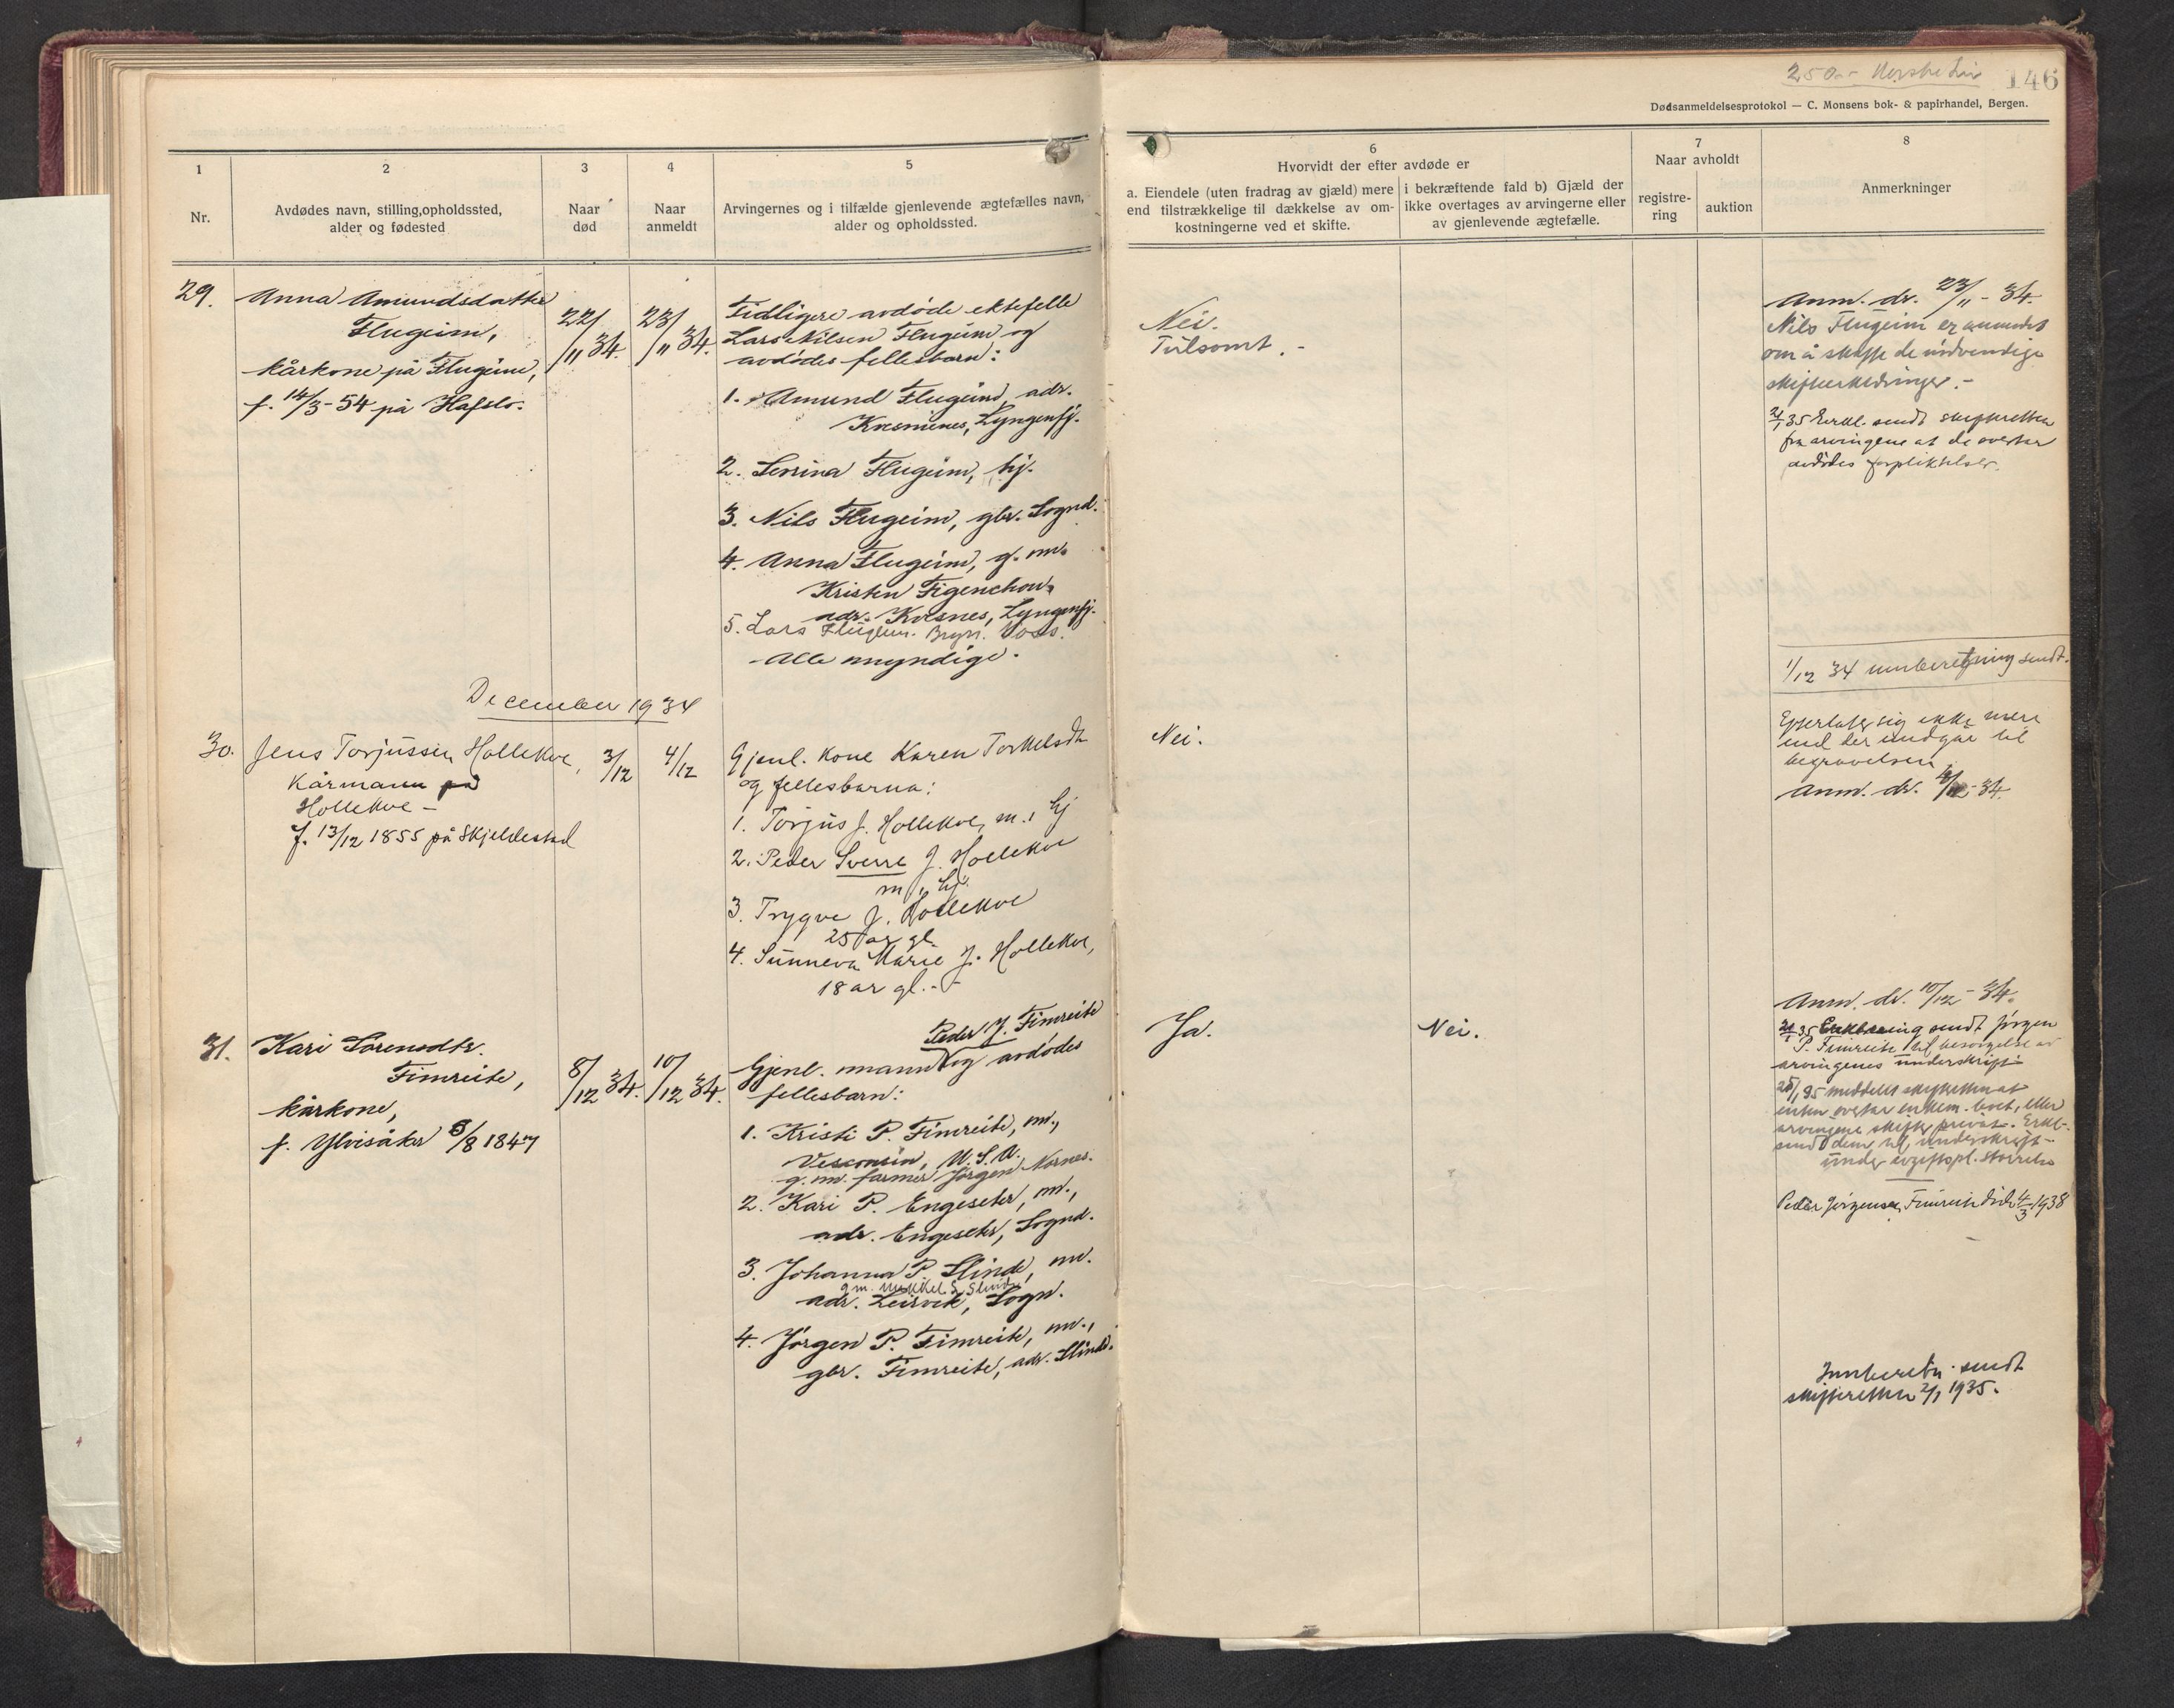 250.- Norske Liv
146
Dødsanmeldelsesprotokol — C. Monsens bok- & papirhandel, Bergen.
1
Nr.
2
Avdødes navn, stilling, opholdssted,
alder og fødested
3
Naar
død
4
Naar
anmeldt
5
Arvingernes og i tilfælde gjenlevende ægtefælles navn,
alder og opholdssted.
6
Hvorvidt der efter avdøde er
a. Eiendele (uten fradrag av gjæld) mere
end tilstrækkelige til dækkelse av om-
kostningerne ved et skifte.
i bekræftende fald b) Gjæld der
ikke overtages av arvingerne eller
av gjenlevende ægtefælle.
7
Naar avholdt
registre-
ring
auktion
8
Anmerkninger
29.
Anna Amundsdatter
Flugeim,
kårkone på Flugeim,
f. 14/3-54 på Hafslo.
22/11 34.
23/11 34.
Tidligere avdöde ektefelle
Lars Nilsen Flugeim og
avdödes fellesbarn:
1. Amund Flugeim, adr.
Kvesmenes, Lyngenfj.
2. Serina Flugeim, hj.
3. Nils Flugeim, gbr. Sognd.
4. Anna Flugeim, g. m.
Kristen Figenchou,
adr. Kvesnes, Lyngenfj.
5. Lars Flugeim. Voss.
Alle myndige.
Nei.
Tilsomt.-
Anm. dr. 23/11-34.
Nils Flugeim er anmodet
om å skaffe de nödvendige
skifteerklæringer.-
2/1 35 Erkl. sendt skifteretten
fra arvingene at de overtar
avdödes forpliktelser.
1/12 34 innberetning sendt.
December 1934
30.
Jens Torjussen Hollekve,
Kårmann på
Hollekve -
f. 13/12 1855 på Skjeldestad
3/12
4/12
Gjenl. kone Karen Torkelsdt
og fellesbarna:
1. Torjus J. Hollekve, m., hj
2. Peder Sverre J. Hollekve
m., hj.
3. Trygve J. Hollekve
25 år gl.
4. Sunneva Marie J. Hollekve,
18 år gl.-
Nei.
Efterlater sig ikke mere
end der medgår til
begravelsen
Anm. dr. 4/12-34.
31.
Kari Sörensdtr.
Fimreite,
kårkone,
f. Ylvisåker 8/8 1847
8/12 34.
10/12 34.
Peder J. Fimreite
Gjenl. mann og avdödes
fellesbarn:
1. Kristi P. Fimreite, m.,
Visconsin, U.S.A.
g. m. farmer Jörgen Nornes.
2. Kari P. Engeseter, m.,
adr. Engeseter, Sognd.
3. Johanna P. Slinde, m.
gm. Mikkel S. Slinde
adr. Leirvik, Sogn.
4. Jörgen P. Fimreite, m.,
gbr. Fimreite, adr. Slinde.
Ja.
Nei.
Anm. dr. 10/12-34.
2/1 35 Erklæring sendt Jörgen
P. Fimreite til besörgelse av
arvingenes underskrift
25/1 35 meddelt skifteretten at
enten overtar enkem. boet, eller
arvingene skifter privat. Erkl.
sendt dem til underskrift-
under avgiftspl. störrelse
Peder Jörgensen Fimreite död 4/3 1938
Innberetn. sendt
skifteretten 2/1 1935.